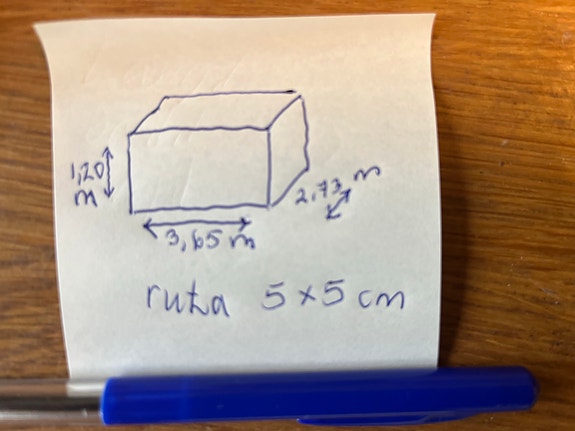 1,20
m
2,73 m
3,65 m
ruta 5 x 5 cm